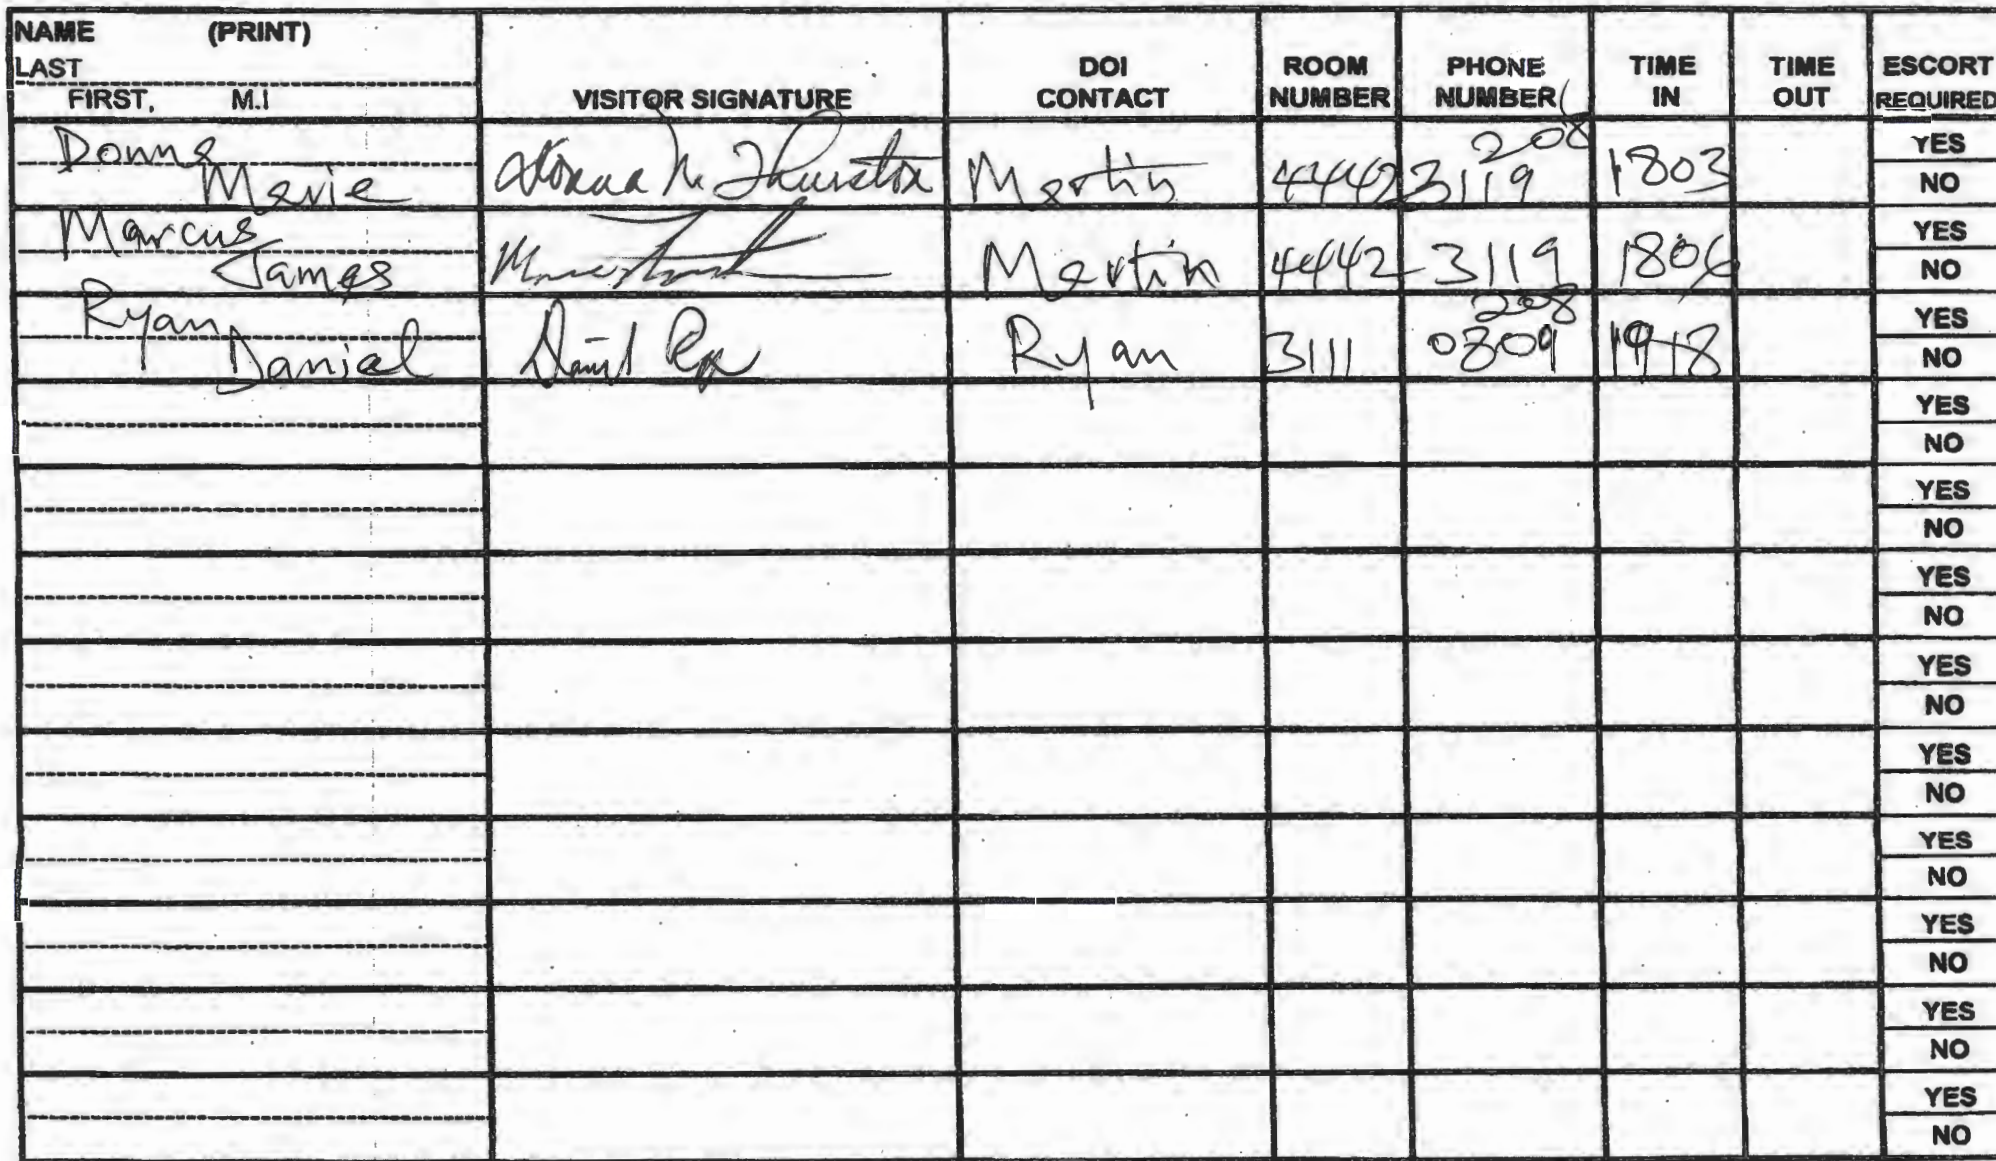 NAME (PRINT)
LAST
FIRST, M.I
VISITOR SIGNATURE
DOI
CONTACT
ROOM
NUMBER
PHONE
NUMBER
TIME
IN
TIME
OUT
ESCORT
REQUIRED
Donna
Marie
Donna M Thurston
Martin
4442
208
3119
1803
YES
NO
Marcus
James
Martin
4442
3119
1806
YES
NO
Ryan
Daniel
Ryan
3111
208
0809
1918
YES
NO
YES
NO
YES
NO
YES
NO
YES
NO
YES
NO
YES
NO
YES
NO
YES
NO
YES
NO